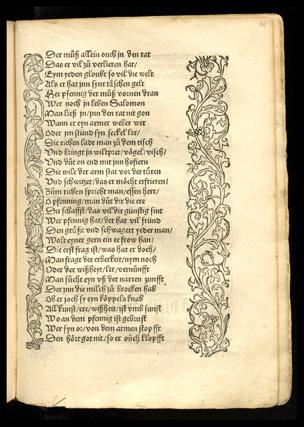 Der můß allein ouch jn den rat
Das er vil zů verlieren hat/
Eym yeden gloubt so vil die welt
Als er hat jnn synr täschen gelt
Her pfennig der můß vornen dran
Wer noch jn leben Salomon
Man ließ jn/jnn den rat nit gon
Wann er eyn armer weber wer
Oder jm stünd syn seckel ler/
Die richen ladt man zů dem tisch
Und bringt jn wiltpret/vögel/visch/
Und důt on end mit jnn hofiern
Die wile der arm stat vor der türen
Und schwitzet/das er möcht erfrieren/
Zům richen spricht man/essen herr/
O pfennig/man důt dir die ere
Du schaffst/das vil dir günstig sint
Wer pfennig hat/der hat vil fründ
Den grüßt und schwagert yeder man/
Wolt eyner gern ein ee frow han/
Die erst frag ist/was hat er doch/
Man fragt der erberkeit/nym noch
Oder der wißheyt/ler/vernunfft
Man sůcht eyn uß der narren zunfft
Der jm die milch zů brocken hab
Ob er joch sy eyn köppels knab
All kunst/ere/wißheit/ist umb sunst
Wo an dem pfennig ist gebrust
Wer syn or/von dem armen stopfft
Den hört got nit/so er ouch klopfft